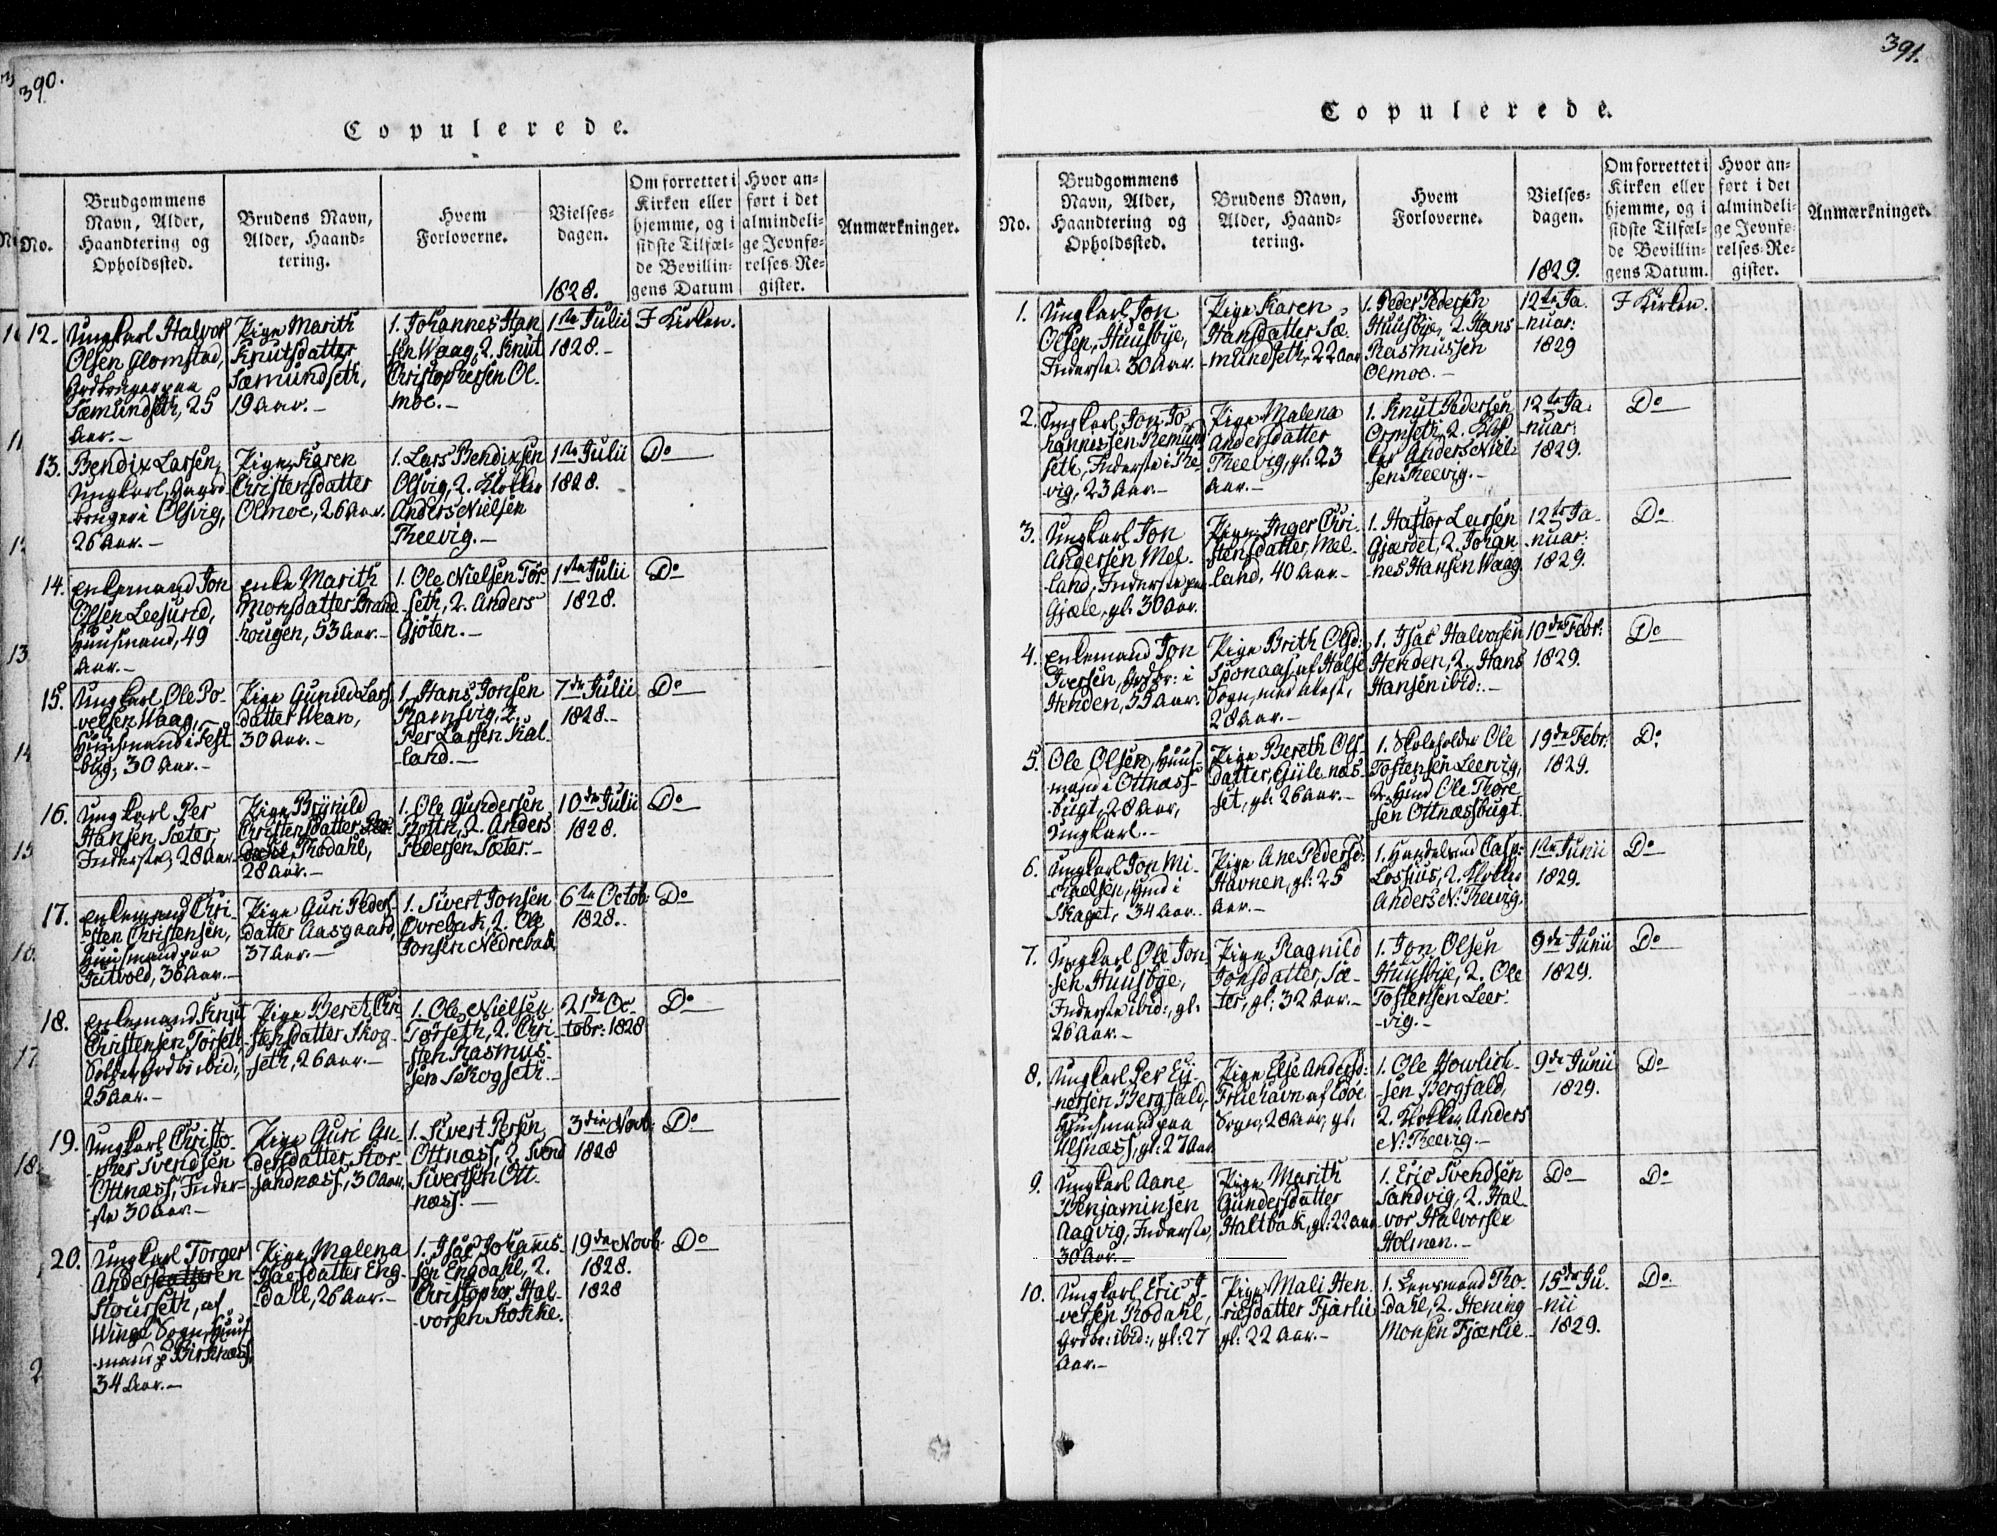 390.
Copulerede.
No.
Brudgommens
Navn, Alder,
Haandtering og
Opholdssted.
Brudens Navn,
Alder, Haand-
tering.
Hvem
Forloverne.
Vielses-
dagen.
1828.
Om forrettet i
Kirken eller
hjemme, og i
sidste Tilfæl-
de Bevillin-
gens Datum
Hvor an-
ført i det
almindeli-
ge Jevnfø-
relses-Re-
gister.
Anmærkninger.
12.
Ungkarl Halvor
Olsen Glomstad,
Grdbruger paa
Sæmundseth, 25
Aar.-
Pige Marith
Knutsdatter
Sæmundseth,
19 Aar.-
1. Johannes Han
sen Waag, 2. Knut
Christophersen Ol-
moe.-
1ste Julii
1828.-
I Kirken.
13.
Bendix Larsen,
Ungkarl, Gaard
bruger i Olsvig,
26 Aar.-
Pige Karen
Christensdatter
Olmoe, 26 Aar.
1. Lars Bendixsen
Olsvig, 2. Klokker
Anders Nielsen
Theevig.-
1ste Julii
1828.
Do
14.
Enkemand Jon
Olsen Leesund,
Huusmand, 49
Aar.-
Enke Marith
Monsdatter Brand
hougen, 53 Aar.-
1. Ole Nielsen Tør-
seth, 2. Anders
Gjøten.-
1ste Julii
1828.
Do
15.
Ungkarl Ole Po-
velsen Waag,
Huusmand i
30 Aar.-
Pige Gunild Lars
datter Wean,
30 Aar.-
1. Hans Jonsen
Ramsvig, 2.
Per Larsen Kal-
land.-
7de Julii
1828.-
Do
16.
Ungkarl Per
Hansen Sæter,
Inderste, 28 Aar.
Pige Brynild
Christensdatter
Thodahl,
28 Aar.-
1. Ole Gundersen
Rotth, 2. Anders
Pedersen Sæter.-
10de Julii
1828.
Do
17.
Enkemand Chri-
sten Christensen,
Huusmand paa
36 Aar.-
Pige Guri Peders
datter Aasgaard,
37 Aar.-
1. Sivert Jonsen
Øvrebak, 2. Ole
Jonsen Nedrebak
6te Octob:
1828.
Do
18.
Enkemand Knut
Christensen Tørseth
Soldat, Grdbr: ibid:,
25 Aar.-
Pige Beret Chri
stensdatter Skog-
seth, 26 Aar.-
1. Ole Nielsen
Tørseth, 2. Chri
sten Rasmus-
sen Skogseth.-
21de Oc-
tobr: 1828
Do
19.
Ungkarl Christo-
pher Svendsen
Ottnæss, Inder-
ste 30 Aar.-
Pige Guri An-
dersdatter Stor-
sandnæss, 30 Aar.
1. Sivert Persen
Ottnæss, 2. Svend
Sivertsen Ott-
næss.-
3die Novb:
1828
Do
20.
Ungkarl Torger
Andersen
af
Winge Sogn, Huus
mand p Birknæss,
34 Aar.-
Pige Malena
Isacsdatter Eng-
dahl, 26 Aar.-
1. Isac Johannis-
sen Engdahl, 2.
Christopher Hal-
vorsen Stokke.
19de Novb
1828.
1828
Do
391.
Copulerede.
No.
Brudgommens
Navn, Alder,
Haandtering og
Opholdssted.
Brudens Navn,
Alder, Haand-
tering.
Hvem
Forloverne.
Vielses-
dagen.
1829.
Om forrettet i
Kirken eller
hjemme, og i
sidste Tilfæl-
de Bevillin-
gens Datum.
Hvor an-
ført i det
almindeli-
ge Jevnfø-
relses-Re-
gister.
Anmærkninger.
1.
Ungkarl Jon
Olsen, Huusbye,
Inderste. 30 Aar.
Pige Karen
Hansdatter Sæ-
mundseth, 22 Aar
1. Peder Pedersen
Huusbye, 2. Hans
Rasmussen
Olmoe.-
12te Ja-
nuar:
1829
I Kirken.
2.
Ungkarl Jon Jo-
hannessen Remund
seth, Inderste i The-
vig, 23 Aar.-
Pige Malena
Andersdatter
Theevig, gl. 23
Aar.-
1. Knut Pedersen
Ormseth, 2. Klok
ker Anders Niel-
sen Theevig.-
12te Ja-
nuar:
1829.
Do
3.
Ungkarl Jon
Andersen Mel-
land, Inderste paa
Gjæle, gl: 30 Aar.
Pige Inger Chri-
stensdatter, Mel-
land, 40 Aar.-
1. Haftor Larsen
Gjærdet, 2. Johan
nes Hansen Waag.
12te Ja-
nuar:
1829.
Do
4.
Enkemand Jon
Iversen, Grdbr: i
Henden, 55 Aar.
Pige Brith Olsd:
Sponaas af Halse
Sogn, med Attest,
28 Aar.-
1. Isac Halvorsen
Henden, 2. Hans
Hansen ibid:.-
10de Febr:
1829.
Do
5.
Ole Olsen, Huus-
mand i Ottnæss-
bugt, 28 Aar,
Ungkarl.-
Pige Bereth Ols-
datter, Gulenæs-
set, gl: 26 Aar.-
1. Skoleholder Ole
Tostensen Leervig,
2. Hmd Ole Thore
sen Ottnæssbugt.
19de Febr:
1829.
Do
6.
Ungkarl Jon Mi-
chaelsen, Hmd i
Skaget, 34 Aar.
Pige Ane Pedersd:
Havnen, gl: 25
Aar.-
1. Handelsmd Casp:
Lossius, 2. Klokker
Anders N: Theevig.
1ste Junii
1829.
Do
7.
Ungkarl Ole Jon-
sen Huusbye,
Inderste ibid:, gl:
26 Aar.-
Pige Ragnild
Jonsdatter, Sæ-
ter, gl: 32 Aar.-
1. Jon Olsen
Huusbye, 2. Ole
Tostensen Leer-
vig.-
9de Junii
1829.
Do
8.
Ungkarl Per Ey-
nersen Bergfald,
Huusmand paa
Ulsnæss, gl: 27 Aar
Pige Else Andersd:
Friehavn af Edøe
Sogn, 28 Aar, gl.
1. Ole Howlich-
sen Bergfald,
2. Klokker Anders
N: Theevig.-
9de Junii
1829.
Do
9.
Ungkarl Aane
Benjaminsen
Aagvig, Inderste,
30 Aar.-
Pige Marith
Gundersdatter
Haltbak, gl: 22 Aar
1. Eric Svendsen
Sandvig, 2. Hal-
vor Halvorsen
Holmen.-
Do
Do
10.
Ungkarl Eric I-
versen Rodahl,
Grdbr: ibid:, gl: 27
Aar.-
Pige Mali Hen
ricsdatter Fjærlie
gl: 22 Aar.-
1. Lensmand Tho-
dahl, 2. Hening
Monsen Fjærlie-
15de Ju-
nii
1829.
Do